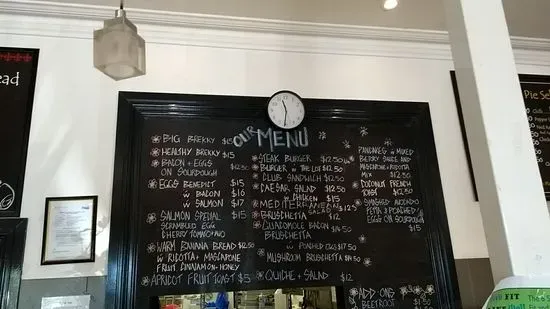 ead
OUR MENU
BIG BREKKY $15
HEALTHY BREKKY $15
BACON + EGGS
ON SOURDOUGH $12.50
EGGS BENEDICT $15
W BACON $16
W SALMON $17
SALMON SPECIAL $15
SCRAMBLED EGG
CHERRY TOMATO + AVO
WARM BANANA BREAD $12.50
W RICOTTA + MASCARPONE
FRUIT CINNAMON-HONEY
APRICOT FRUIT TOAST $5
STEAK BURGER $12.50
BURGER W THE LOT $12.50
CLUB SANDWICH $12.50
CAESAR SALAD $12.50
W CHICKEN $15
MEDITERRANEAN SALAD $12.50
BRUSCHETTA
GUACAMOLE BACON $14.50
BRUSCHETTA
W POACHED EGG $17.50
MUSHROOM BRUSCHETTA $14.50
QUICHE + SALAD $12
PANCAKES W MIXED
BERRY SAUCE AND
MASCARPONE + RICOTTA
MIX $12.50
COCONUT FRENCH
TOAST $12.50
SMASHED AVOCADO
FETTA + POACHED
EGGS ON SOURDOUGH
$15
ADD-ONS
BEETROOT $1.50
Pie Se
FIT